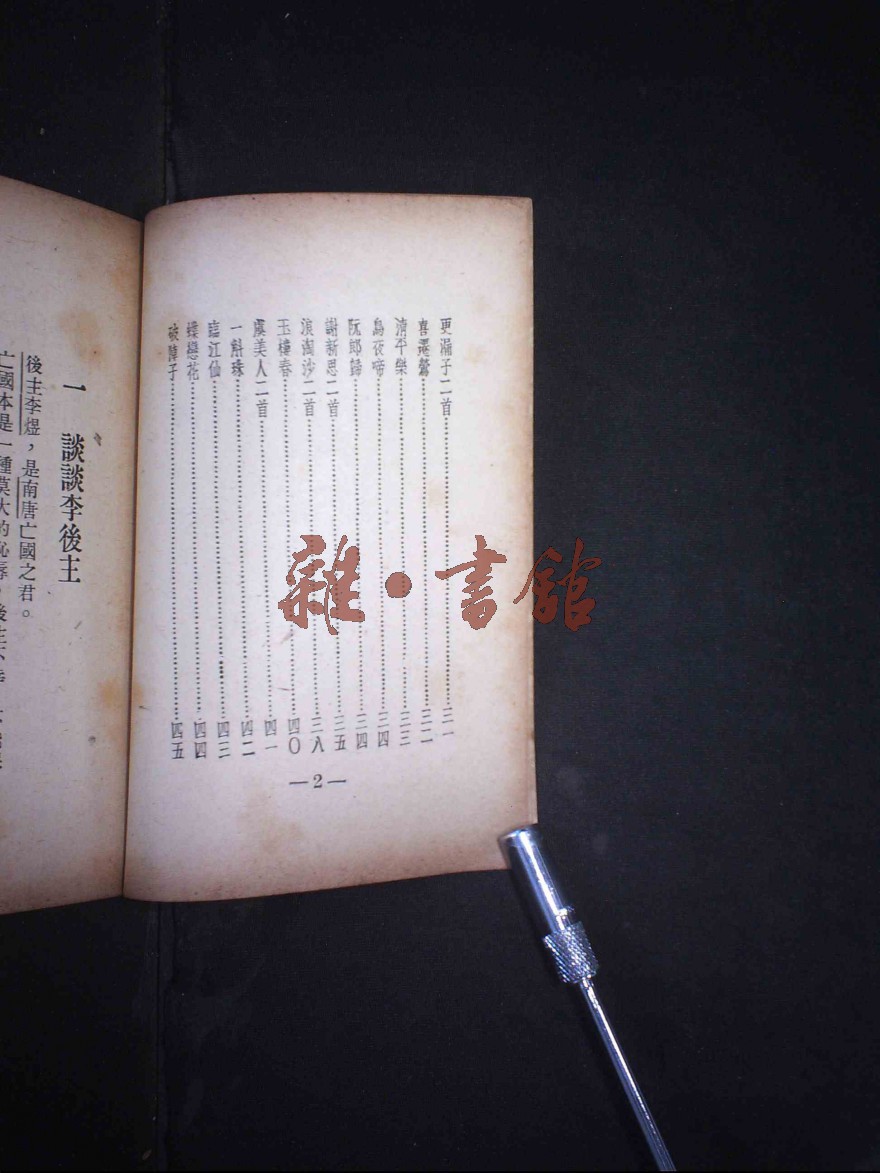 更漏子二首……三一
喜遷鶯……三二
清平樂……三三
烏夜啼……三四
阮郎歸……三四
謝新思二首……三五
浪淘沙二首……三八
玉樓春……四〇
虞美人二首……四一
一斛珠……四二
臨江仙……四三
蝶戀花……四四
破陣子……四五
—2—
一 談談李後主
後主李煜，是南唐亡國之君。
亡國本是一種莫大的恥辱
雜·書館